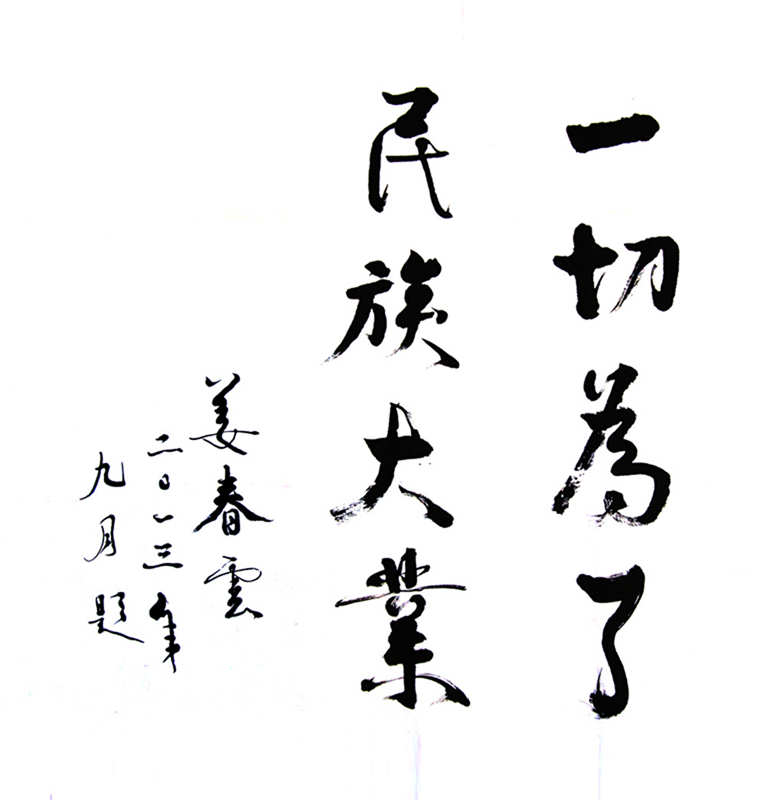 一切為了
民族大業
姜春雲
二〇一三年
九月題